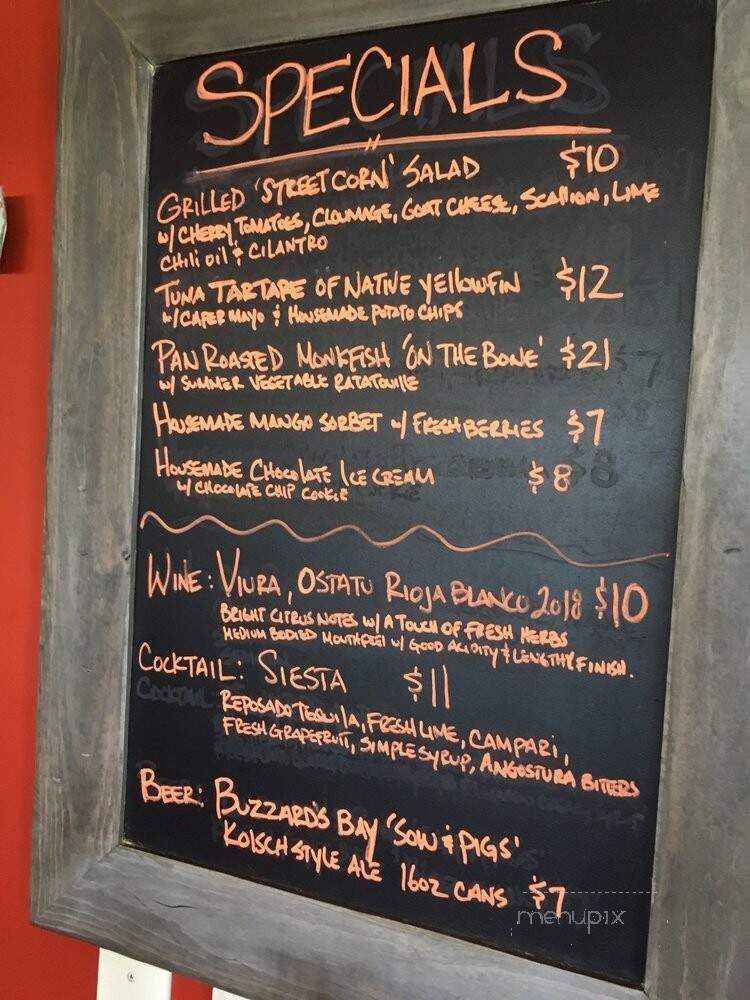 SPECIALS
GRILLED 'STREET CORN' SALAD $10
W/ CHERRY TOMATOES, CLOUMAGE, GOAT CHEESE, SCALLION, LIME
CHILI OIL & CILANTRO
TUNA TARTARE OF NATIVE YELLOWFIN $12
W/ CAPER MAYO & HOUSEMADE POTATO CHIPS
PAN ROASTED MONKFISH 'ON THE BONE' $21
W/ SUMMER VEGETABLE RATATOUILLE
HOUSEMADE MANGO SORBET W/ FRESH BERRIES $7
HOUSEMADE CHOCOLATE ICE CREAM $8
W/ CHOCOLATE CHIP COOKIE
WINE: VIURA, OSTATU RIOJA BLANCO 2018 $10
BRIGHT CITRUS NOTES W/ A TOUCH OF FRESH HERBS
MEDIUM BODIED MOUTHFEEL W/ GOOD ACIDITY & LENGTHY FINISH.
COCKTAIL: SIESTA $11
REPOSADO TEQUILA, FRESH LIME, CAMPARI,
FRESH GRAPEFRUIT, SIMPLE SYRUP, ANGOSTURA BITTERS
BEER: BUZZARD'S BAY 'SOW & PIGS'
KOLSCH STYLE ALE 16OZ CANS $7
menupix